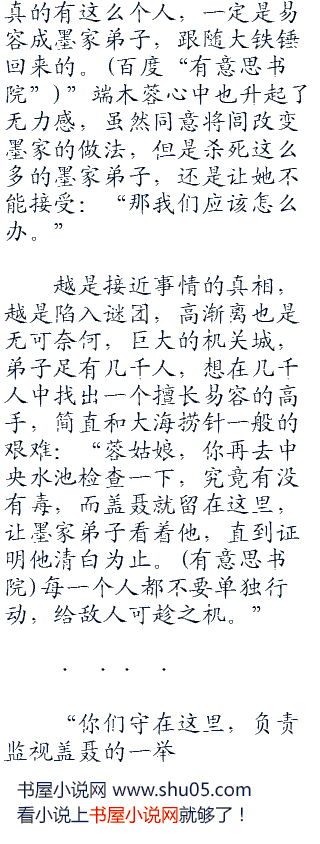 真的有这么个人，一定是易
容成墨家弟子，跟随大铁锤
回来的。(百度“有意思书
院”)”端木蓉心中也升起了
无力感，虽然同意将闾改变
墨家的做法，但是杀死这么
多的墨家弟子，还是让她不
能接受：“那我们应该怎么
办。”
越是接近事情的真相，
越是陷入谜团，高渐离也是
无可奈何，巨大的机关城，
弟子足有几千人，想在几千
人中找出一个擅长易容的高
手，简直和大海捞针一般的
艰难：“蓉姑娘，你再去中
央水池检查一下，究竟有没
有毒，而盖聂就留在这里，
让墨家弟子看着他，直到证
明他清白为止。(有意思书
院)每一个人都不要单独行
动，给敌人可趁之机。”
．．．．
“你们守在这里，负责
监视盖聂的一举
书屋小说网 www.shu05.com
看小说上书屋小说网就够了！